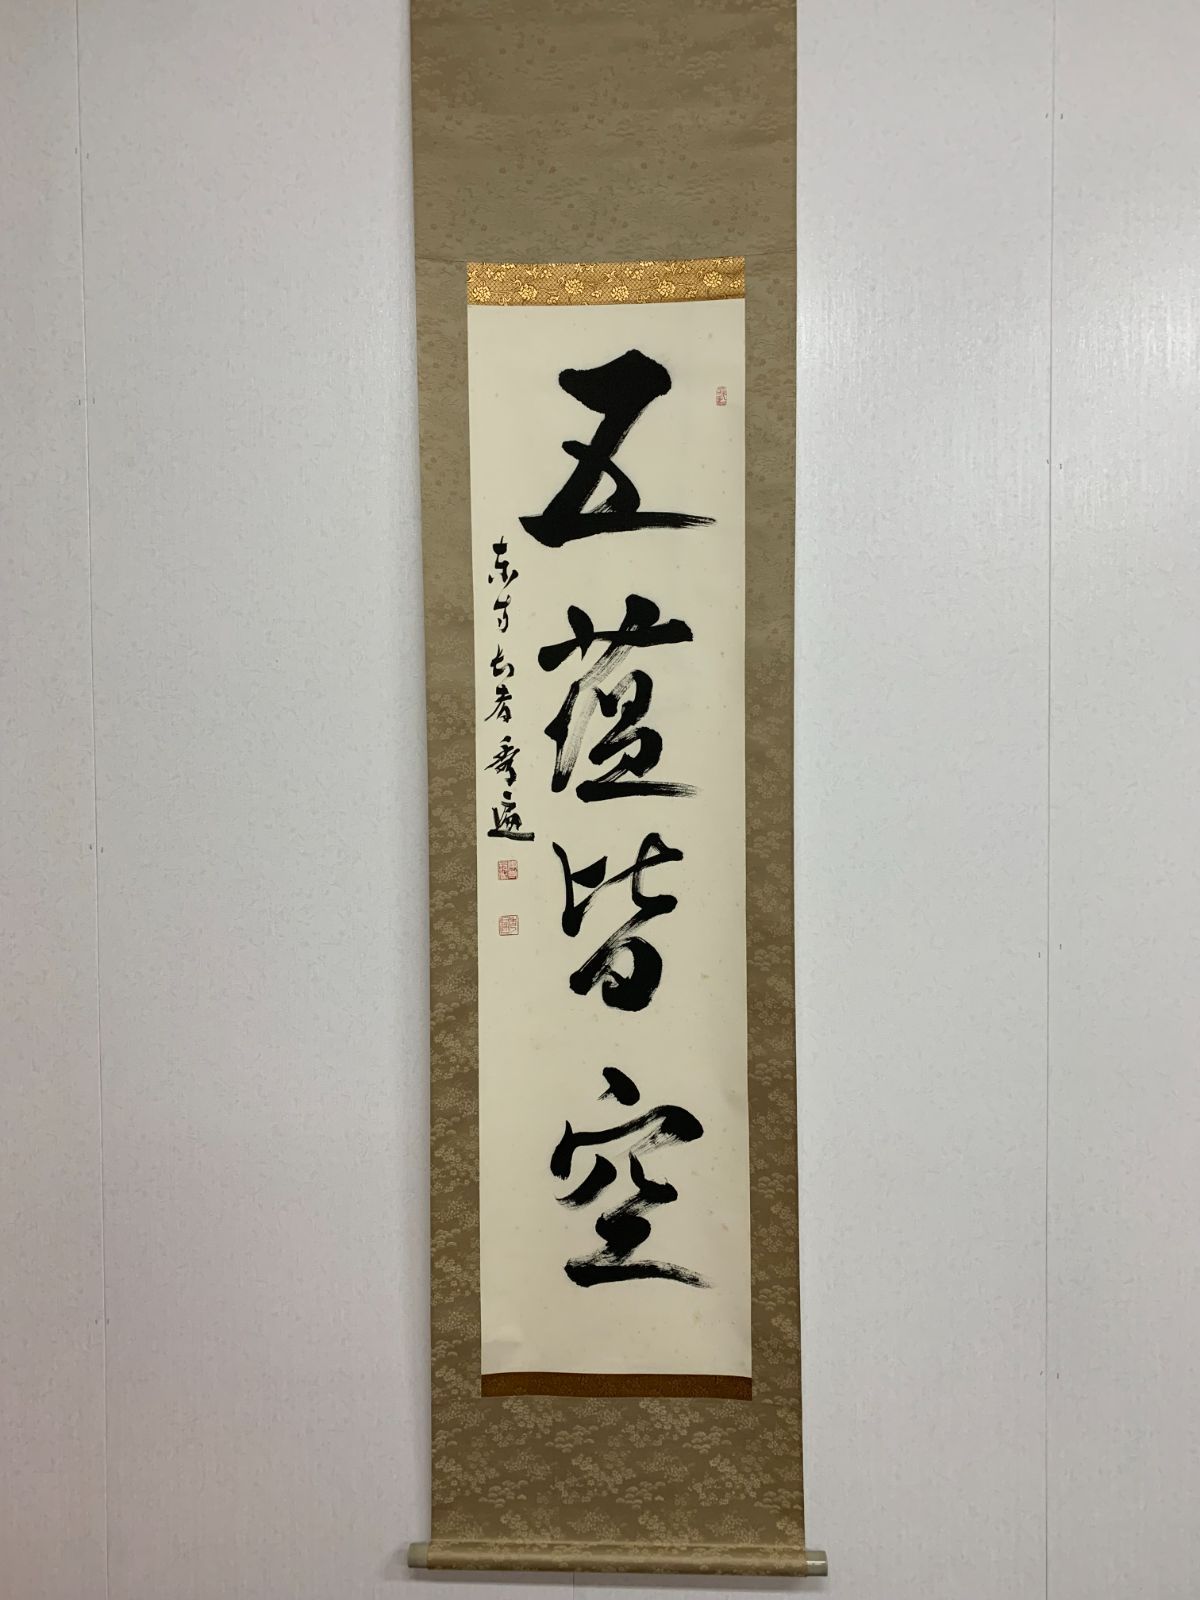 五蘊皆空
東寺長者秀遍